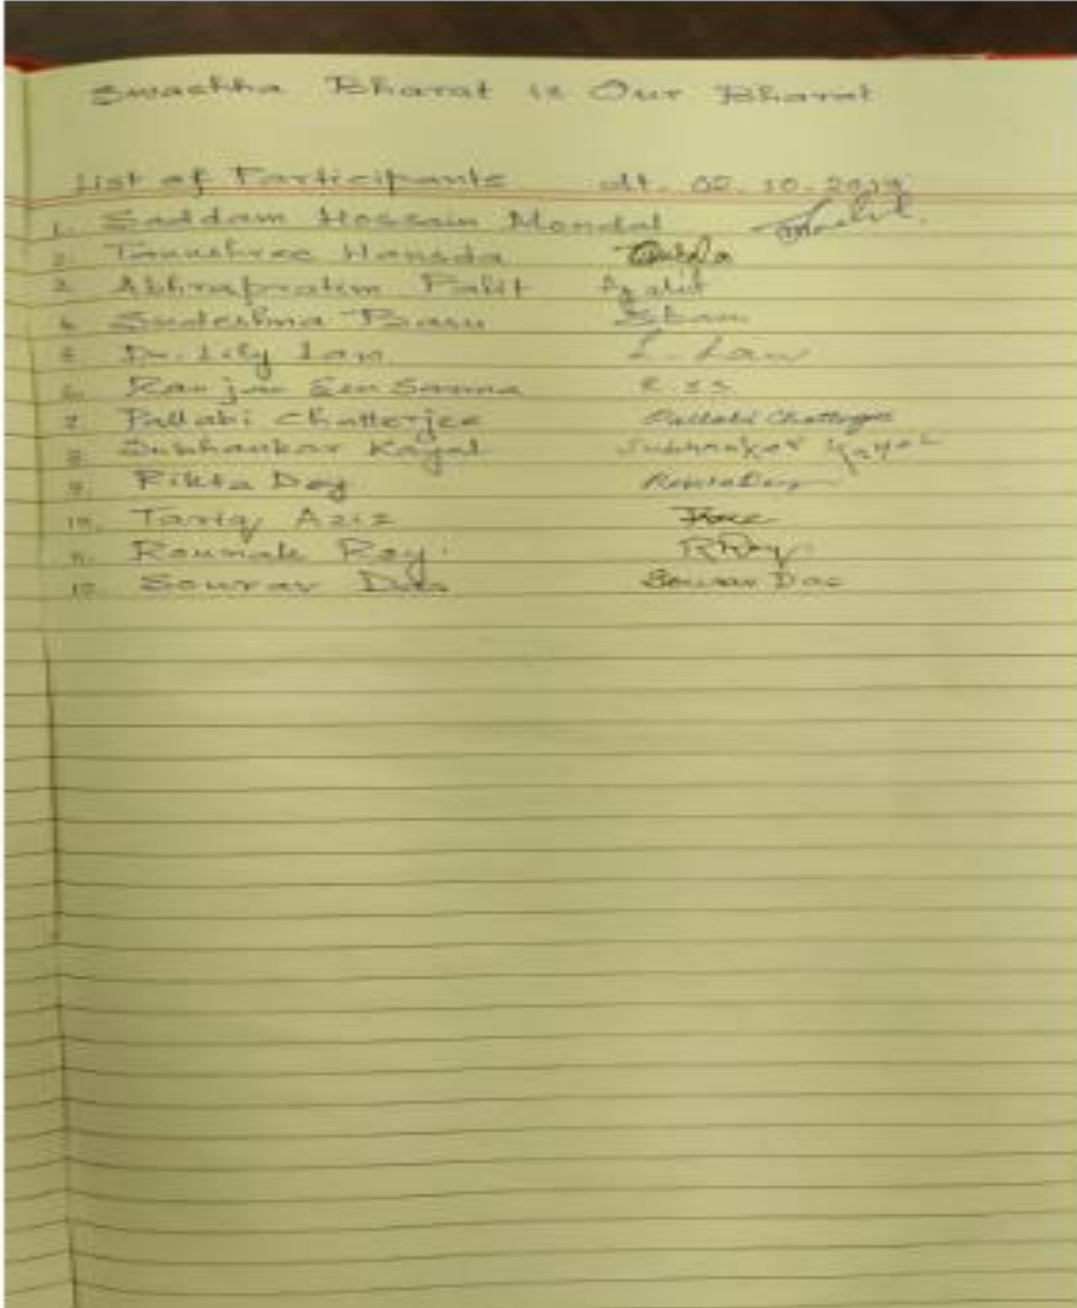 Swachha Bharat is Our Bharat
List of Participants dt. 02.10.2019
1. Saddam Hossain Mondal
2. Tanushree Hansda
3. Abhrapratim Palit Apalit
4. Sudeshna Basu
5. Dr. Lily Law L. Law
6. Ranjan Sen Sarma R.SS
7. Pallabi Chatterjee Pallabi Chatterjee
8. Subhankar Kayal Subhankar Kayal
9. Rikta Dey Rikta Dey
10. Tariq Aziz
11. Rounak Roy. RRoy.
12. Sourav Das Sourav Das